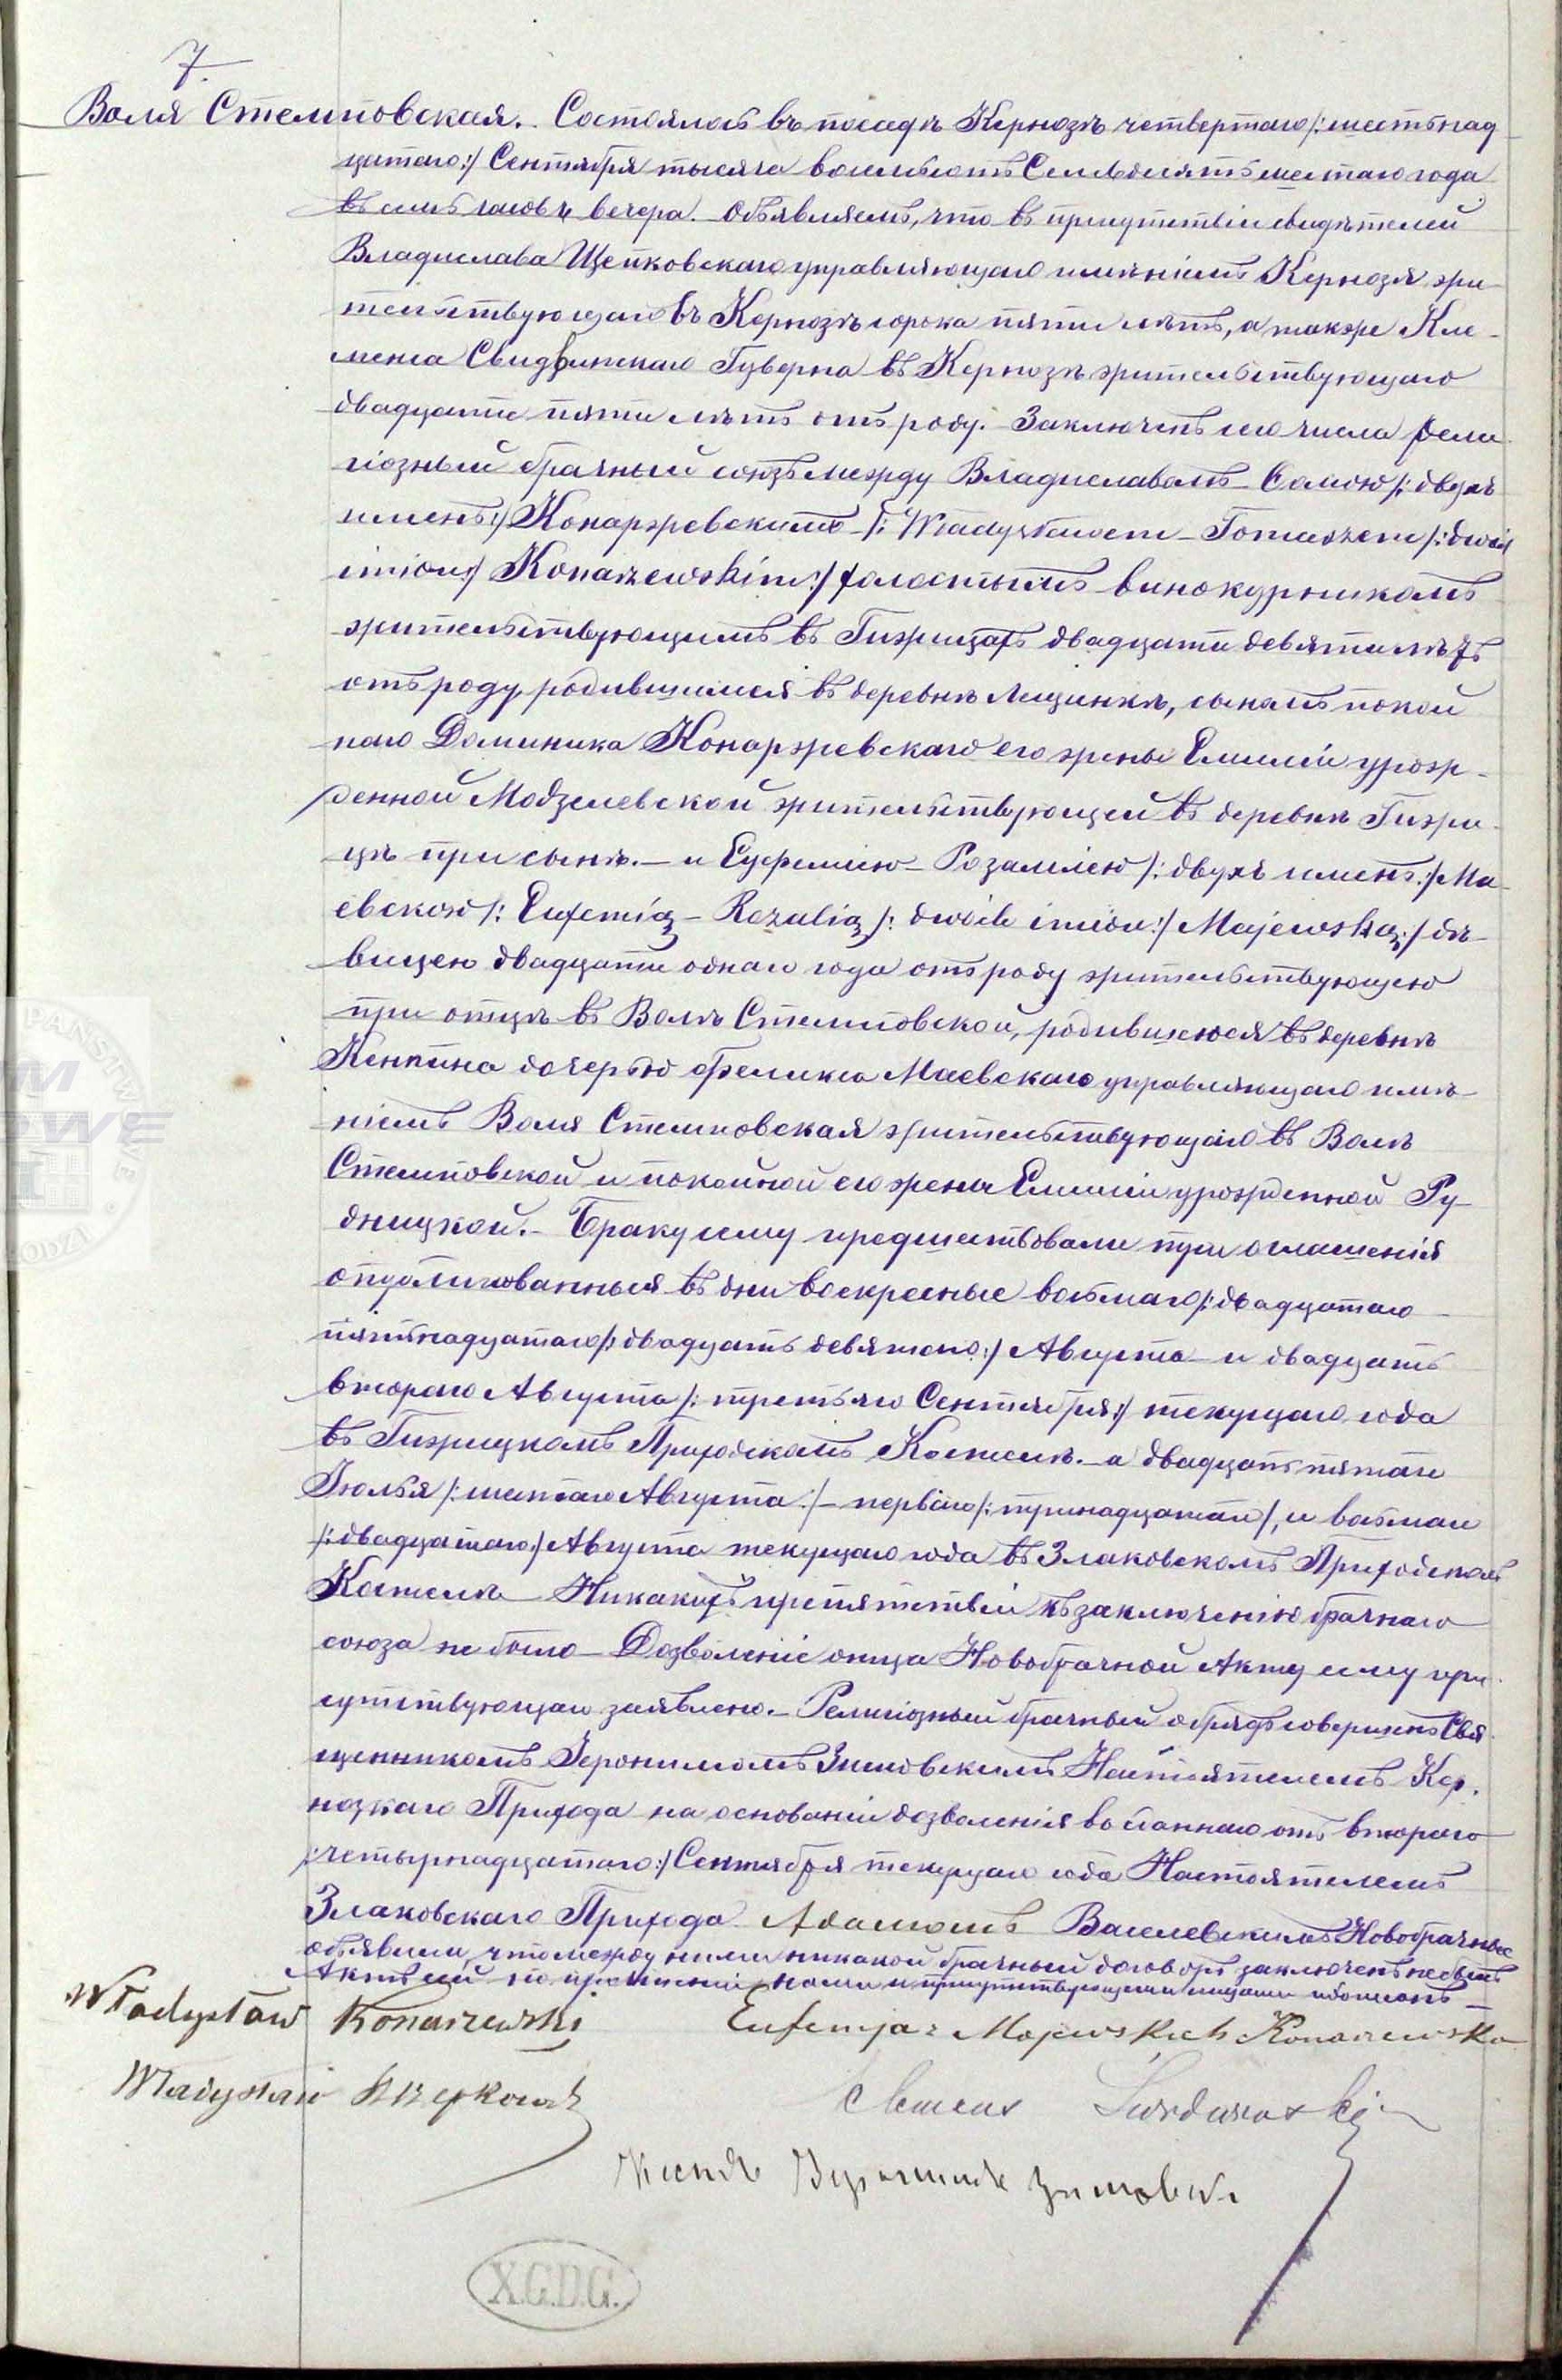 7.
Воля Стемповская. Состоялось въ посадѣ Кернозѣ четвертаго /: шестнад
цатаго :/ Сентября тысяча восемьсотъ Семьдесятъ шестаго года
въ семь часовъ вечера. Объявляемъ, что въ присутствіи свидѣтелей
Владислава Щепковскаго управляющаго имѣніемъ Кернозя жи
тельствующаго въ Кернозѣ сорока пяти лѣтъ, а также Кле-
менса Гуверна въ Кернозѣ жительствующаго
двадцати пяти лѣтъ отъ роду. Заключенъ сего числа рели
гіозный брачный союзъ между Владиславомъ - Ѳомою /: двухъ
именъ :/ Конаржевскимъ /: Władysławem - Tomaszem /: dwóch
imion :/ Konarzewskim :/ холостымъ винокурникомъ
жительствующимъ въ Гижицахъ двадцати девяти лѣтъ
отъ роду, родившимся въ деревнѣ Лещинкѣ, сыномъ покой
наго Доминика Конаржевскаго его жены Емиліи урож-
денной Модзелевской жительствующей въ деревнѣ Гижи-
цѣ при сынѣ. - и Еуфемію - Розалією /: двухъ именъ :/ Ма-
евскою /: Eufemią - Rozalią /: dwóch imion :/ Majewską :/ дѣ-
вицею двадцати одного года отъ роду жительствующею
при отцѣ въ Волѣ Стемповской, родившеюся въ деревнѣ
Кемпина дочерью Феликса Маевскаго управляющаго имѣ-
ніемъ Воля Стемповская жительствующаго въ Волѣ
Стемповской и покойной его жены Емиліи урожденной Ру-
дницкой. - Браку сему предшествовали три оглашенія
опубликованныя въ дни воскресные восьмаго /: двадцатаго
пятнадцатаго /: двадцать девятаго :/ Августа и двадцать
втораго Августа /: третьяго Сентября :/ текущаго года
въ Гижицкомъ Приходскомъ Костелѣ. - а двадцать пятаго
Іюлья /: шестаго Августа :/ - перваго /: тринадцатаго /, и восьмаго
/: двадцатаго :/ Августа текущаго года въ Злаковскомъ Приходскомъ
Костелѣ Никакихъ препятствій къ заключенію брачнаго
союза не было - Дозволеніе отца Новобрачной Акту сему при
сутствующаго заявлено. - Религіозный брачный обрядъ совершенъ Свя
щенникомъ Іеронимомъ Зимовскимъ Настоятелемъ Кер.
нозкаго Прихода на основаніи дозволенія отъ втораго
/: четырнадцатаго :/ Сентября текущаго года Настоятелемъ
Злаковскаго Прихода Адамомъ Василевскимъ Новобрачные
объявили, что между ними никакой брачный договоръ заключенъ не былъ
Актъ сей по прочтеніи нами и присутствующими лицами подписанъ -
Władysław Konarzewski Eufemja z Majewskich Konarzewska
Władysław Szczepkowski Clemens
Ксендз Зимовски
X.G.D.G.